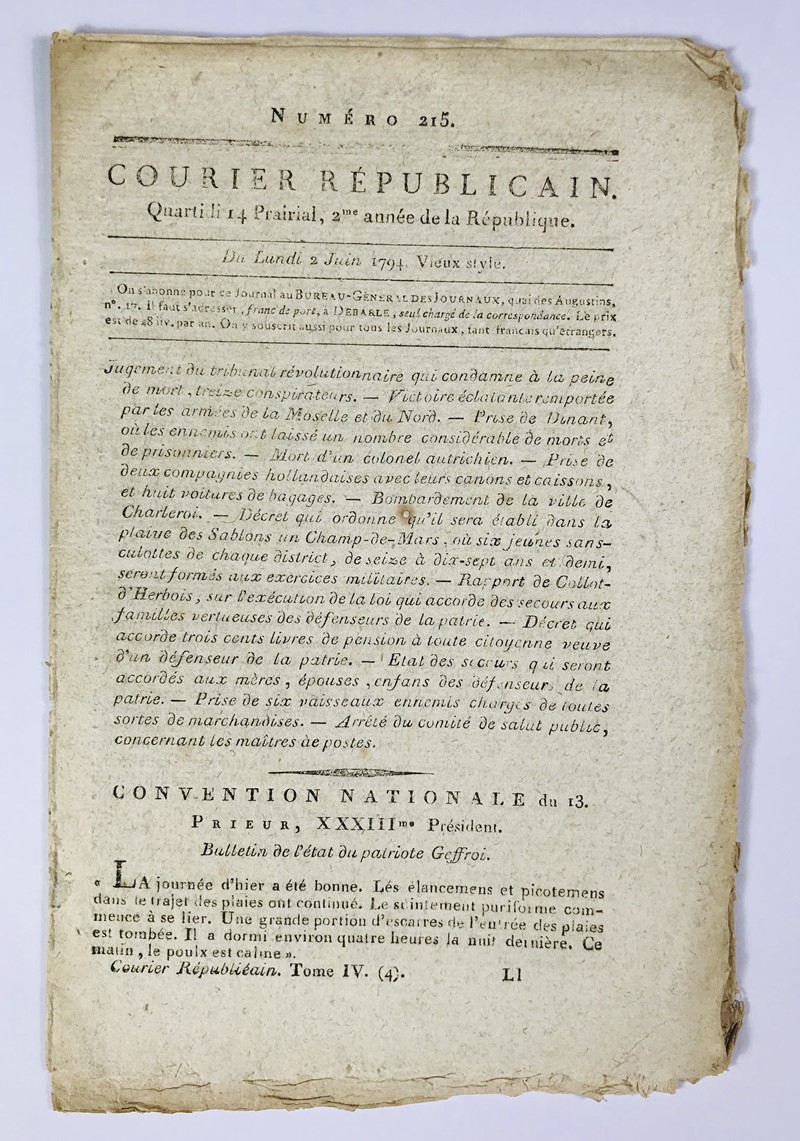 Numéro 215.
COURIER RÉPUBLICAIN.
Quartidi 14 Prairial, 2me année de la République.
Du Lundi 2 Juin 1794. Vieux style.
On s'abonne pour ce Journal au BUREAU-GÉNÉRAL DES JOURNAUX, quai des Augustins,
n°. 17. Il faut s'adresser, franc de port, à DEBARLE, seul chargé de la correspondance. Le prix
est de 48 liv. par an. On y souscrit aussi pour tous les Journaux, tant français qu'étrangers.
Jugement du tribunal révolutionnaire qui condamne à la peine
de mort, treize conspirateurs. — Victoire éclatante remportée
par les armées de la Moselle et du Nord. — Prise de Dinant,
où les ennemis ont laissé un nombre considérable de morts et
de prisonniers. — Mort d'un colonel autrichien. — Prise de
deux compagnies hollandaises avec leurs canons et caissons,
et huit voitures de bagages. — Bombardement de la ville de
Charleroi. — Décret qui ordonne qu'il sera établi dans la
plaine des Sablons un Champ-de-Mars, où six jeunes sans-
culottes de chaque district, de seize à dix-sept ans et demi,
seront formés aux exercices militaires. — Rapport de Collot-
d'Herbois, sur l'exécution de la loi qui accorde des secours aux
familles vertueuses des défenseurs de la patrie. — Décret qui
accorde trois cents livres de pension à toute citoyenne veuve
d'un défenseur de la patrie. — Etat des secours qui seront
accordés aux mères, épouses, enfans des défenseurs de la
patrie. — Prise de six vaisseaux ennemis chargés de toutes
sortes de marchandises. — Arrêté du comité de salut public,
concernant les maîtres de postes.
CONVENTION NATIONALE du 13.
PRIEUR, XXXIIIme Président.
Bulletin de l'état du patriote Geffroi.
« LA journée d'hier a été bonne. Lés élancemens et picotemens
dans le trajet des plaies ont continué. Le suintement puriforme com-
mence à se lier. Une grande portion d'escarres de l'entrée des plaies
est tombée. Il a dormi environ quatre heures la nuit dernière. Ce
matin, le poulx est calme ».
Courier Républicain. Tome IV. (4). Ll